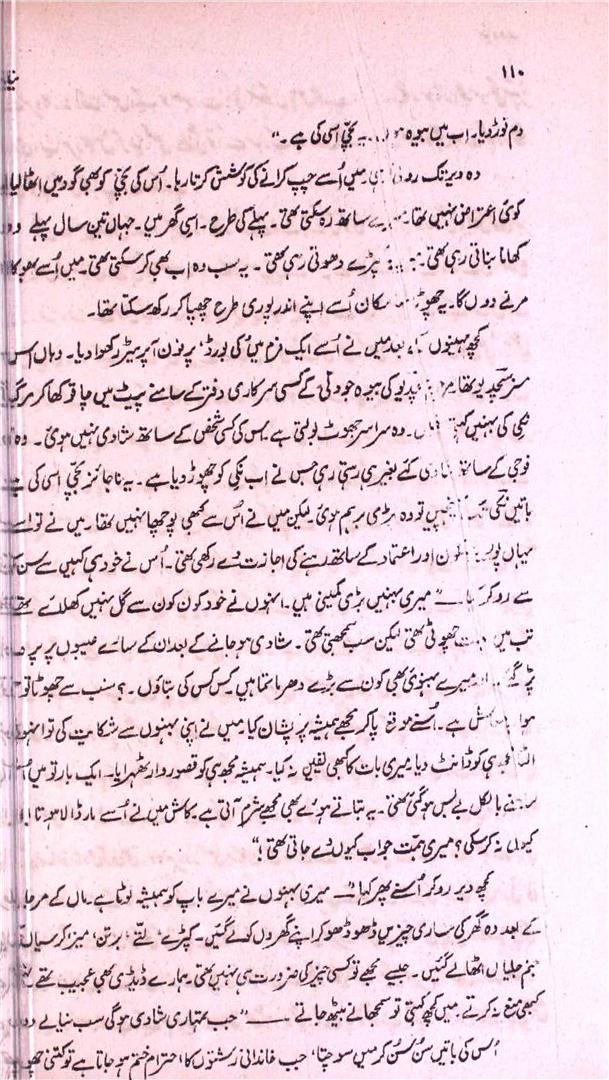 ۱۱۰
دم توڑ دیا۔ اب میں بیوہ ہوں۔ یہ بچّی اسی کی ہے۔"
وہ دیر تک روتی رہی میں اُسے چپ کرانے کی کوشش کرتا رہا۔ اُس کی بچّی کو بھی گود میں اٹھا لیا
کوئی اعتراض نہیں تھا۔ ساتھ رہ سکتی تھی۔ پہلے کی طرح۔ اسی گھر میں۔ جہاں تین سال پہلے
کھانا بناتی رہی تھی۔ کپڑے دھوتی رہی تھی۔ یہ سب وہ اب بھی کر سکتی تھی۔ میں اُسے بھوکا
مرنے دوں گا۔ یہ چھوٹا سا مکان اُسے اپنے اندر پوری طرح چھپا کر رکھ سکتا تھا۔
کچھ مہینوں کے بعد میں نے اُسے ایک فرم میں کی بورڈ پر فون آپریٹر رکھوا دیا۔ وہاں اس
مسز سچدیو تھا۔ سچدیو کی بیوہ جو دلی کے کسی سرکاری دفتر کے سامنے پیٹ میں چاقو کھا کر مر گیا
نکی کی بہنیں کہتی وہ سراسر جھوٹ بولتی ہے۔ اس کی کسی شخص کے ساتھ شادی نہیں ہوئی۔ وہ
فوجی کے ساتھ شادی کئے بغیر ہی رہتی رہی جس نے اب نکی کو چھوڑ دیا ہے۔ یہ ناجائز بچّی اسی کی ہے
باتیں نکی تو وہ بڑی برہم ہوئی۔ لیکن میں نے اُس سے کبھی پوچھا نہیں تھا۔ میں نے تو اسے
یہاں پورے سکون اور اعتماد کے ساتھ رہنے کی اجازت دے رکھی تھی۔ اُس نے خود ہی کہیں سے سن
سے رو کر "میری بہنیں بڑی کمینی ہیں۔ انہوں نے خود کون کون سے گل نہیں کھلائے تھے
تب میں بہت چھوٹی تھی لیکن سب سمجھتی تھی۔ شادی ہو جانے کے بعد ان کے سارے عیبوں پر پردہ
پڑ گیا۔ اور میرے بہنوئی بھی کون سے بڑے دھرماتما ہیں۔ کس کس کی بتاؤں۔؟ سب سے چھوٹا تو
ہوا ہے۔ اُسنے موقع پا کر مجھے ہمیشہ پریشان کیا۔ میں نے اپنی بہنوں سے شکایت کی تو انہوں
الٹا مجھ ہی کو ڈانٹ دیا۔ میری بات کا کبھی یقین نہ کیا۔ ہمیشہ مجھ ہی کو قصوروار ٹھہرایا۔ ایک بار تو میں اُس
سامنے بالکل بے بس ہو گئی تھی۔ یہ بتاتے ہوئے بھی مجھے شرم آتی ہے کاش میں نے اُسے مار ڈالا ہوتا
کیوں نہ کر سکی؟ میری ہمّت جواب کیوں دے جاتی تھی!"
کچھ دیر رو کر اُسنے پھر کہا۔ "میری بہنوں نے میرے باپ کو ہمیشہ لوٹا ہے۔ ماں کے مر جانے
کے بعد وہ گھر کی ساری چیزیں ڈھو ڈھو کر اپنے گھروں کو لے گئیں۔ کپڑے، لتّے، برتن، میز کرسیاں
اٹھا لے گئیں۔ جیسے مجھے تو کسی چیز کی ضرورت ہی نہیں تھی۔ ہمارے ڈیڈی بھی عجیب تھے
کبھی منع نہ کرتے۔ میں کچھ کہتی تو سمجھانے بیٹھ جاتے ـــ "جب تمہاری شادی ہوگی سب نیا لے دوں
اُس کی باتیں سُن سُن کر میں سوچتا، جب خاندانی رشتوں کا احترام ختم ہو جاتا ہے تو کتنی